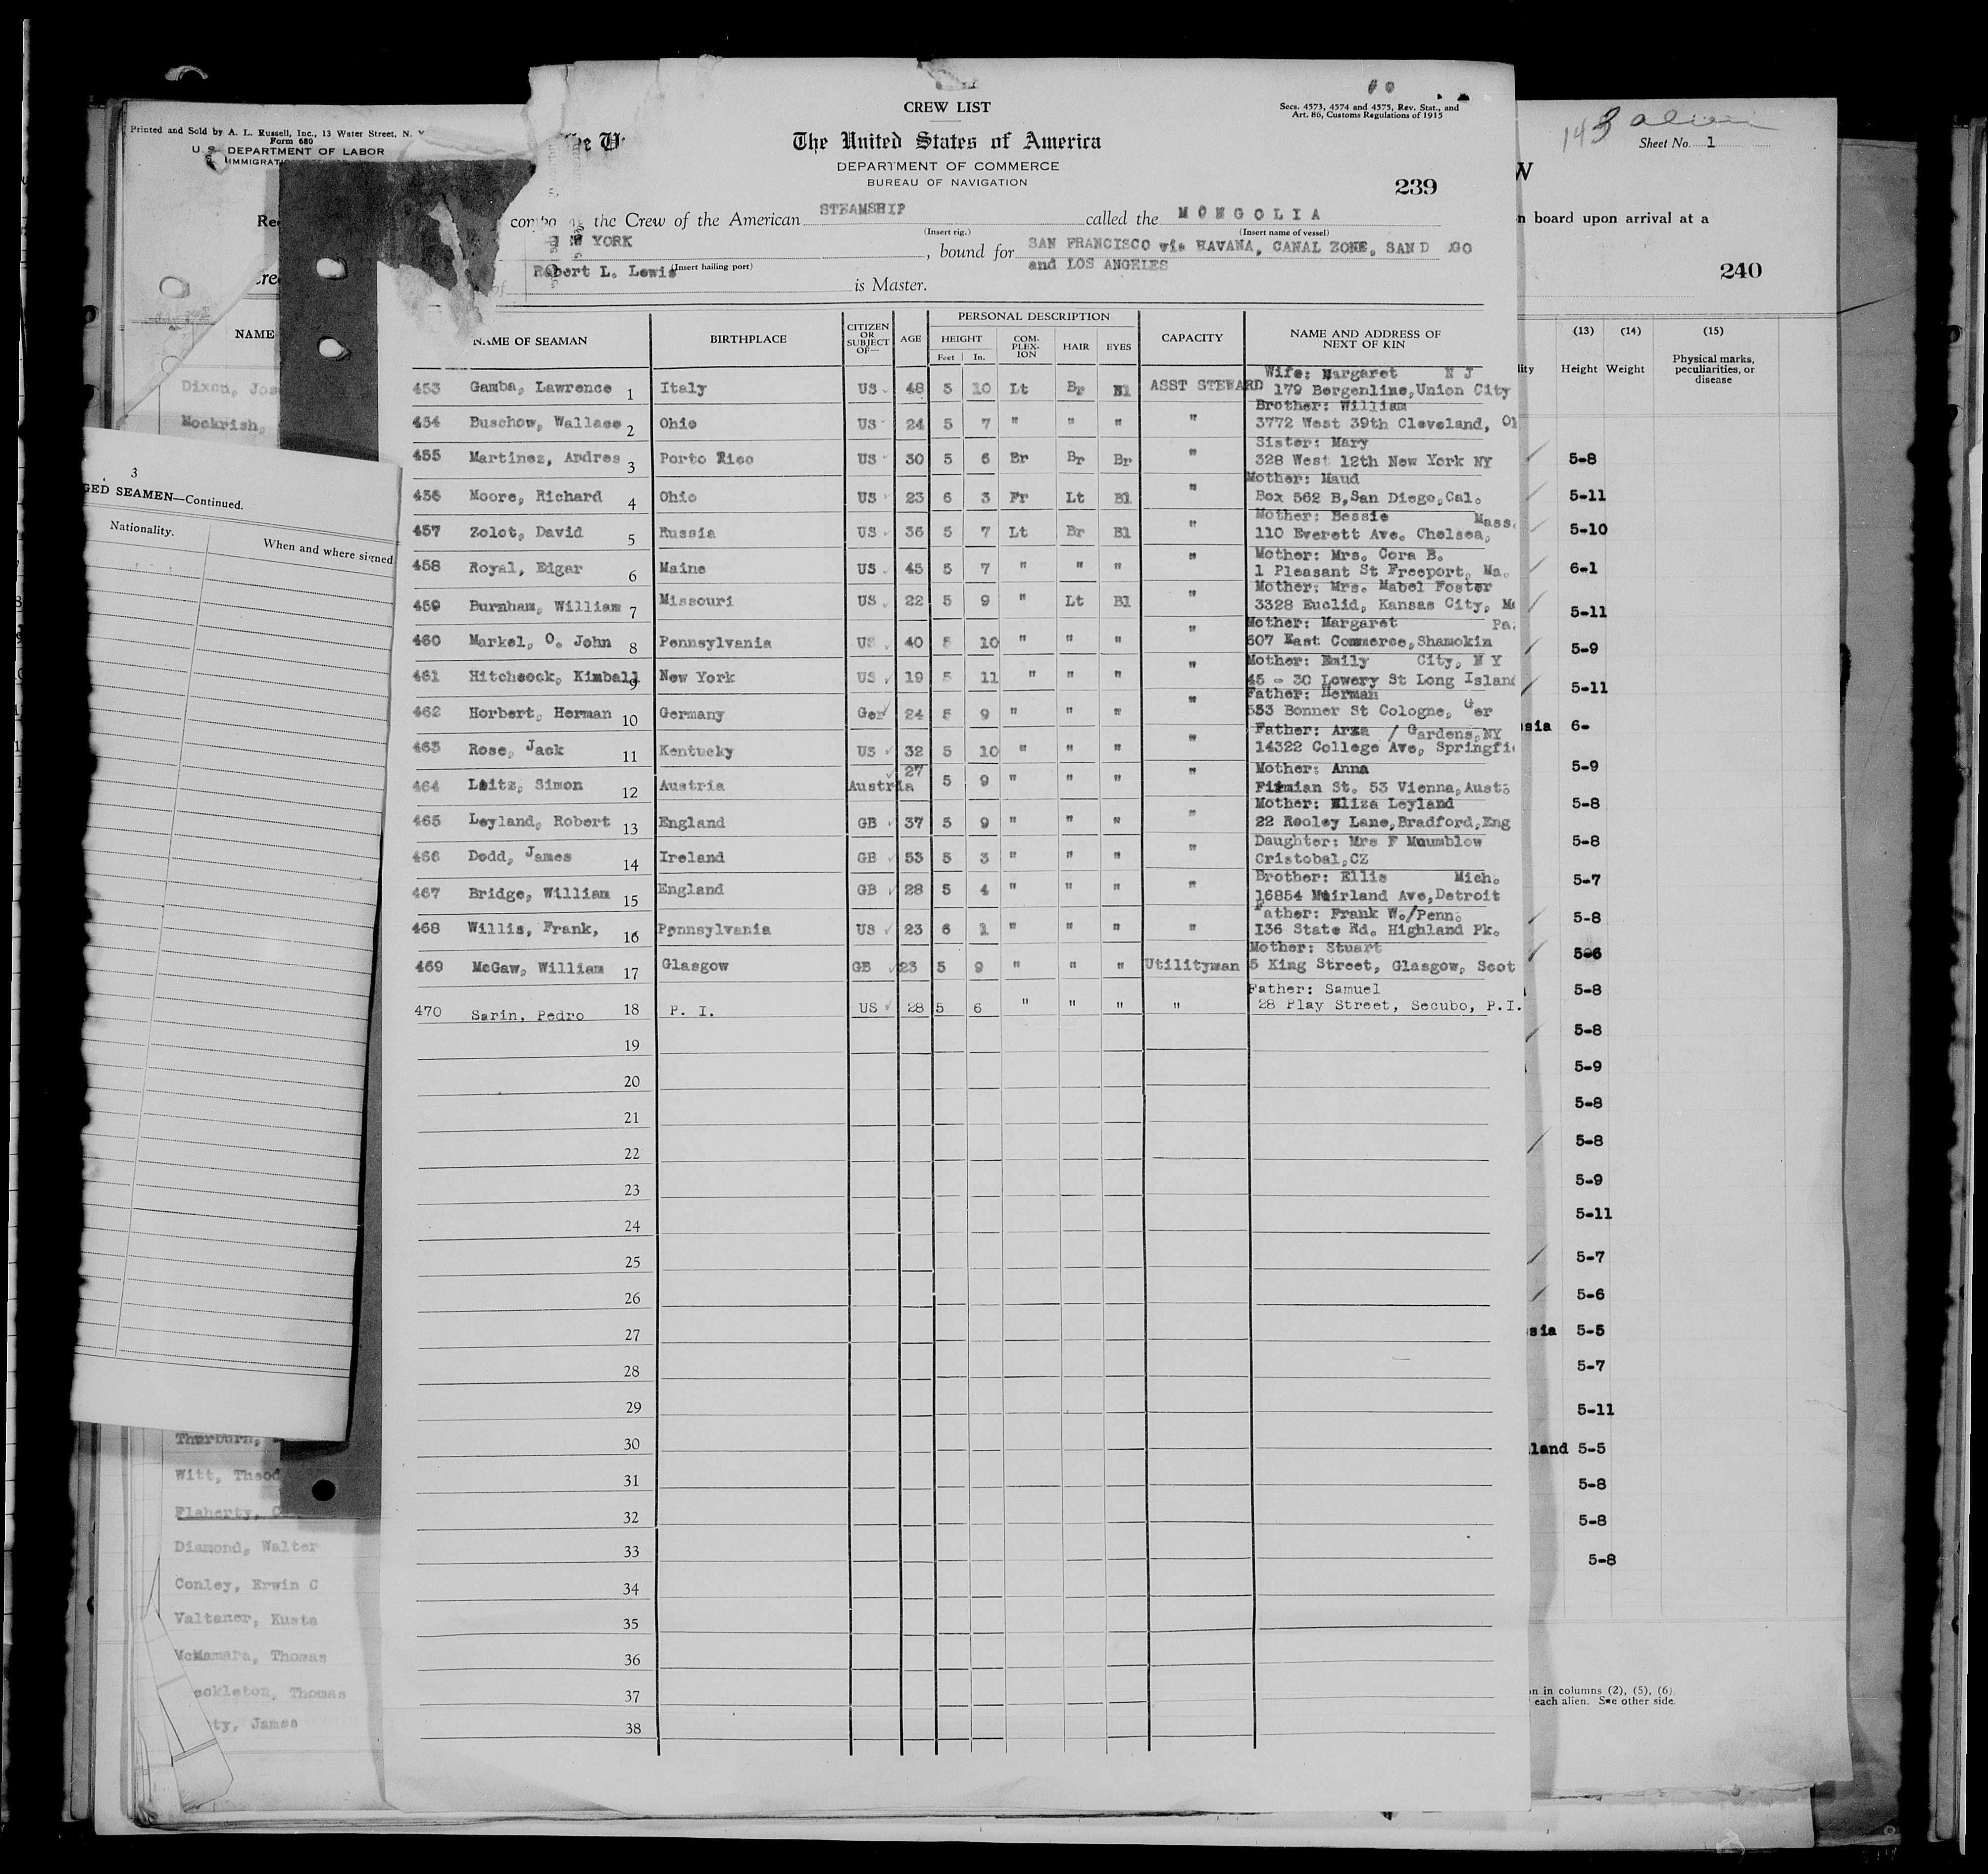 Printed and Sold by A. L. Russell, Inc., 13 Water Street, N. Y
Form 680
U. S. DEPARTMENT OF LABOR
IMMIGRATI
NAME
Dixon, Jos
Mockrish,
3
GED SEAMEN—Continued.
Nationality.
When and where signed
Thorburn,
Witt, Theod
Flaherty, C
Diamond, Walter
Conley, Erwin C
Valtaner, Kusta
McNamara, Thomas
eckleton, Thomas
ty, James
CREW LIST
Secs. 4573, 4574 and 4575, Rev. Stat., and
Art. 86, Customs Regulations of 1915
The United States of America
DEPARTMENT OF COMMERCE
BUREAU OF NAVIGATION
239
the Crew of the American STEAMSHIP called the MONGOLIA
(Insert rig.) (Insert name of vessel)
YORK , bound for SAN FRANCISCO via HAVANA, CANAL ZONE, SAN D GO
(Insert hailing port) and LOS ANGELES
Robert L. Lewis is Master.
NAME OF SEAMAN BIRTHPLACE CITIZEN OR SUBJECT OF— AGE PERSONAL DESCRIPTION CAPACITY NAME AND ADDRESS OF NEXT OF KIN
HEIGHT COM-PLEX-ION HAIR EYES
Feet In.
Wife: Margaret N J
453 Gamba, Lawrence 1 Italy US 48 5 10 Lt Br Bl ASST STEWARD 179 Bergenline, Union City
Brother: William
454 Buschow, Wallace 2 Ohio US 24 5 7 " " " " 3772 West 39th Cleveland,
Sister: Mary
455 Martinez, Andres 3 Porto Rico US 30 5 6 Br Br Br " 328 West 12th New York NY
Mother: Maud
456 Moore, Richard 4 Ohio US 23 6 3 Fr Lt Bl " Box 562 B, San Diego, Cal.
Mother: Bessie Mass.
457 Zolot, David 5 Russia US 36 5 7 Lt Br Bl " 110 Everett Ave. Chelsea,
Mother: Mrs. Cora B.
458 Royal, Edgar 6 Maine US 45 5 7 " " " " 1 Pleasant St Freeport, Ma.
Mother: Mrs. Mabel Foster
459 Burnham, William 7 Missouri US 22 5 9 " Lt Bl " 3328 Euclid, Kansas City, M
Mother: Margaret Pa.
460 Markel, O. John 8 Pennsylvania US 40 5 10 " " " " 507 East Commerce, Shamokin
Mother: Emily City, N Y
461 Hitchcock, Kimball 9 New York US 19 5 11 " " " " 45 - 30 Lowery St Long Island
Father: Herman
462 Horbert, Herman 10 Germany Ger 24 5 9 " " " " 533 Bonner St Cologne, Ger
Father: Arza / Gardens, NY
463 Rose, Jack 11 Kentucky US 32 5 10 " " " " 14322 College Ave, Springfi
Mother: Anna
464 Leitz, Simon 12 Austria Austria 27 5 9 " " " " Firmian St. 53 Vienna, Aust.
Mother: Eliza Leyland
465 Leyland, Robert 13 England GB 37 5 9 " " " " 22 Rooley Lane, Bradford, Eng
Daughter: Mrs F Muumblow
466 Dodd, James 14 Ireland GB 53 5 3 " " " " Cristobal, CZ
Brother: Ellis Mich.
467 Bridge, William 15 England GB 28 5 4 " " " " 16854 Muirland Ave, Detroit
Father: Frank W./Penn.
468 Willis, Frank, 16 Pennsylvania US 23 6 1 " " " " 136 State Rd. Highland Pk.
Mother: Stuart
469 McGaw, William 17 Glasgow GB 23 5 9 " " " Utilityman 5 King Street, Glasgow, Scot
Father: Samuel
470 Sarin, Pedro 18 P. I. US 28 5 6 " " " " 28 Play Street, Secubo, P.I.
19
20
21
22
23
24
25
26
27
28
29
30
31
32
33
34
35
36
37
38
143 alien
Sheet No. 1
W
n board upon arrival at a
240
(13) (14) (15)
lity Height Weight Physical marks, peculiarities, or disease
5-8
5-11
5-10
6-1
5-11
5-9
5-11
sia 6-
5-9
5-8
5-8
5-7
5-8
5-6
5-8
5-8
5-9
5-8
5-8
5-9
5-11
5-7
5-6
sia 5-5
5-7
5-11
land 5-5
5-8
5-8
5-8
n in columns (2), (5), (6)
each alien. See other side.